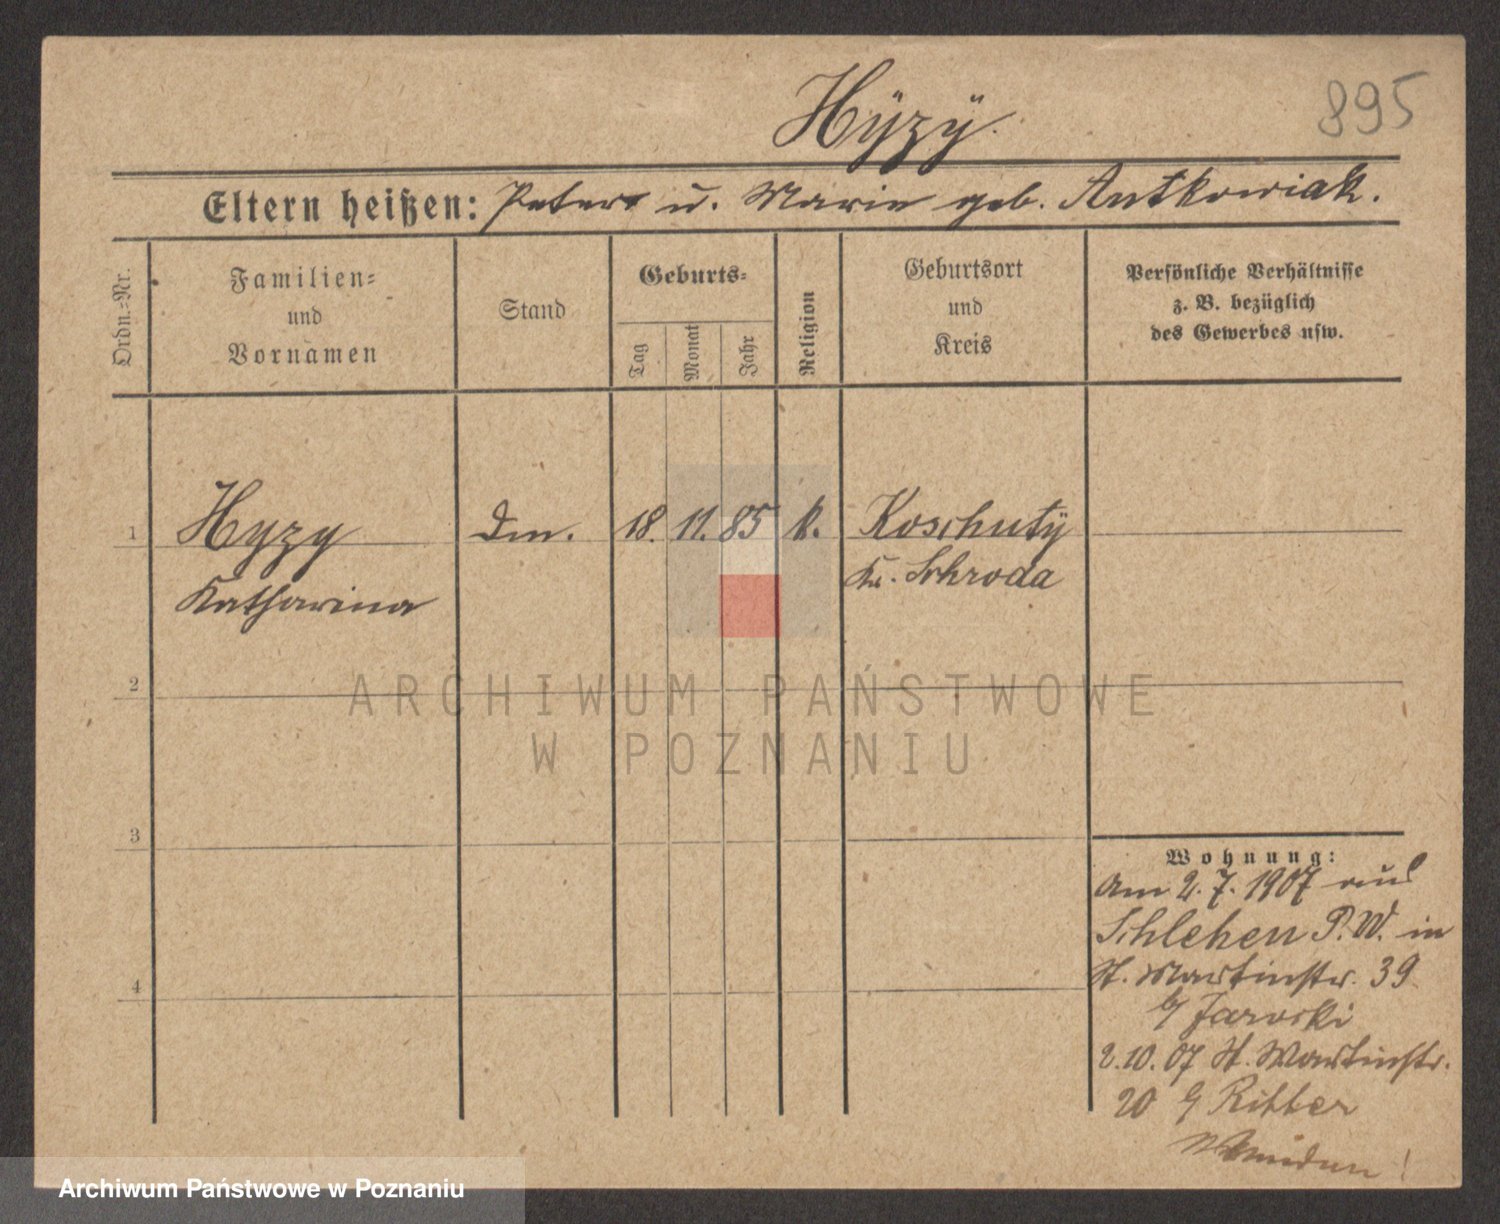 Hÿzÿ.
895
Eltern heißen: Peter u. Marie geb. Antkowiak.
Ordn.-Nr.
Familien-
und
Vornamen
Stand
Geburts-
Tag
Monat
Jahr
Religion
Geburtsort
und
Kreis
Persönliche Verhältnisse
z. B. bezüglich
des Gewerbes usw.
1
Hyzy
Katharina
Dm.
18.
11.
85
k.
Koschutÿ
Kr. Schroda
2
3
4
Wohnung:
Am 2.7.1907 aus
Schlehen P.W. in
St. Martinstr. 39
b/ Jaroski
2.10.07 St. Martinstr.
20 b/ Ritter
ARCHIWUM PAŃSTWOWE
W POZNANIU
Archiwum Państwowe w Poznaniu